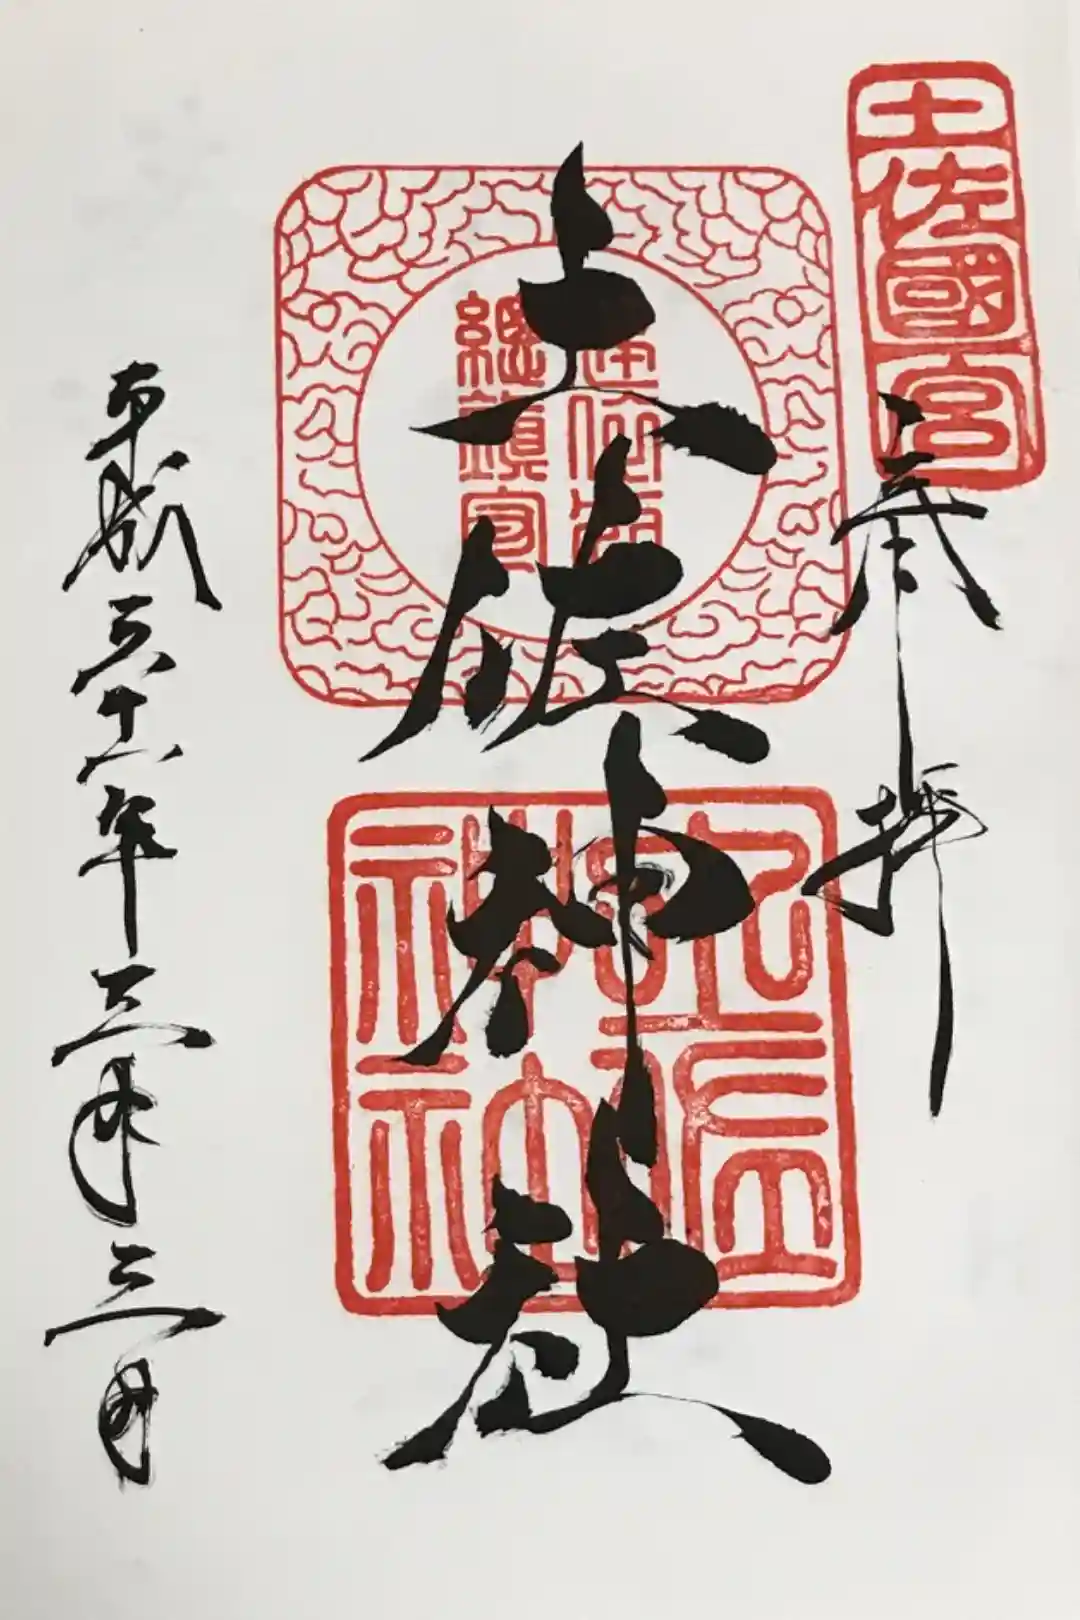 土佐國一宮
奉拝
土佐神社
總鎮守
土佐神社
平成三十一年三月三日